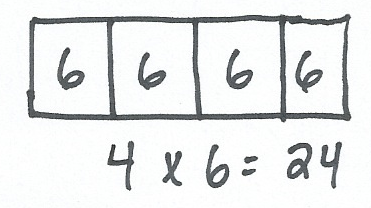 6 6 6 6
4 x 6 = 24